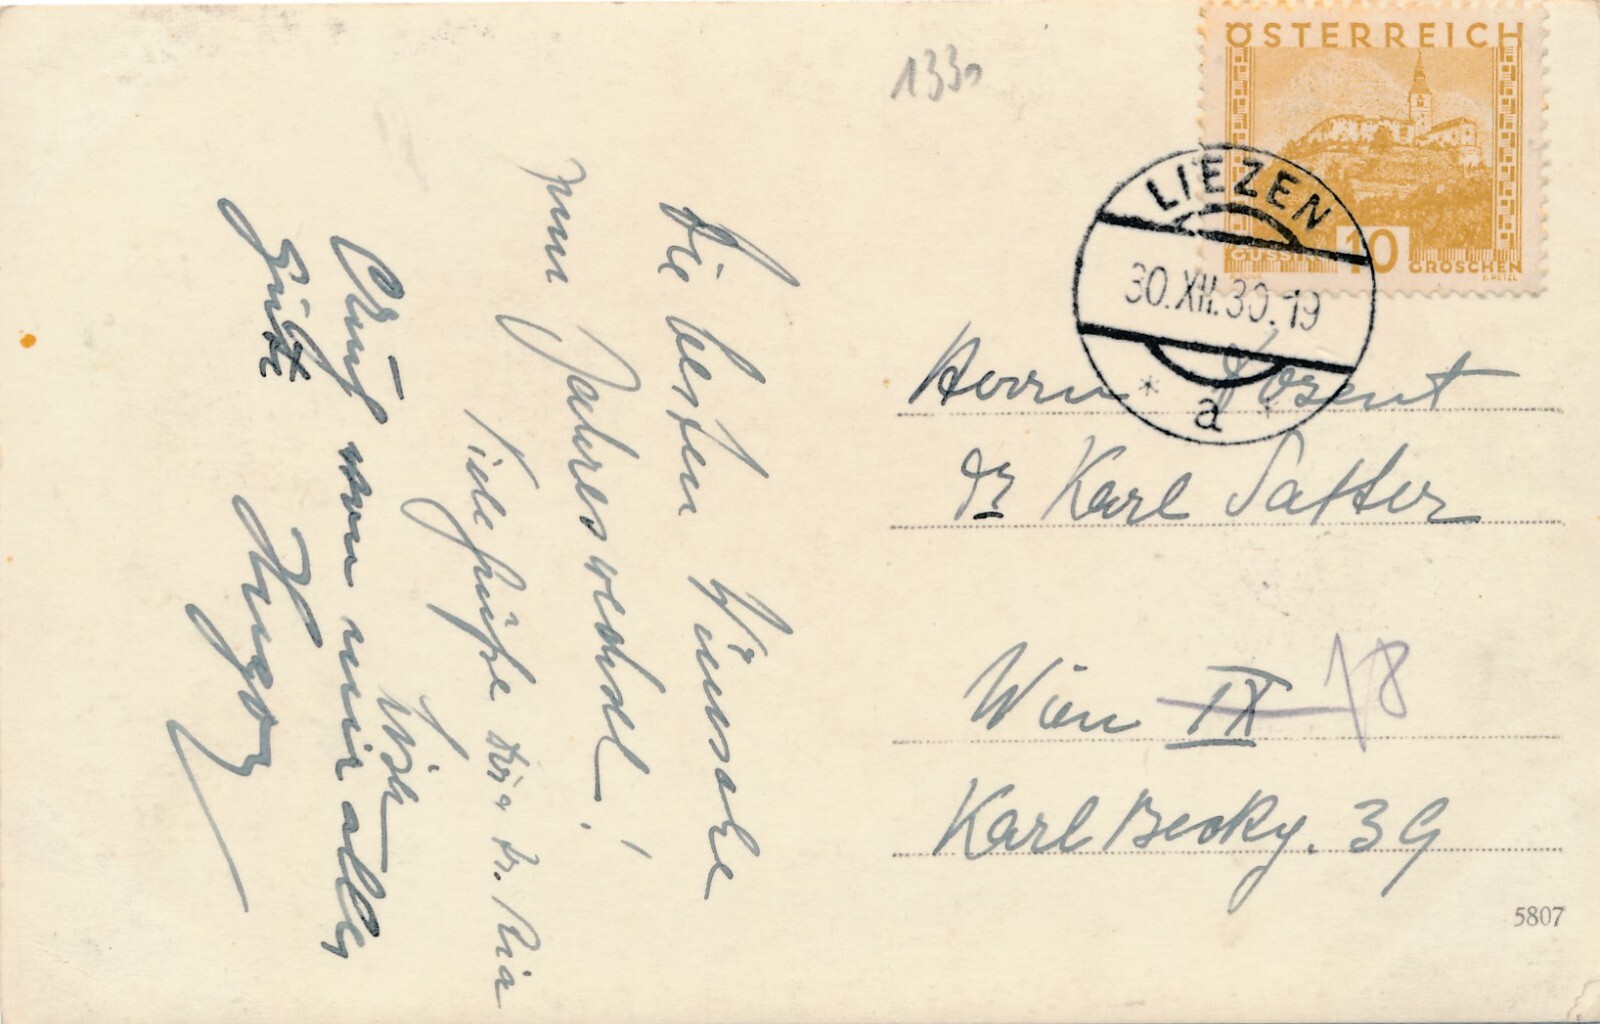 1330
ÖSTERREICH
GÜSSING
10 GROSCHEN
LIEZEN
30.XII.30.19
* a *
Die besten Wünsche
zum Jahreswechsel!
Viele Grüße Dir u Dr. Ria
Auch von mir alles
Gute
Hugo
Herrn Dozent
Dr Karl Satter
Wien IX 18
Karl Beckg. 39
5807